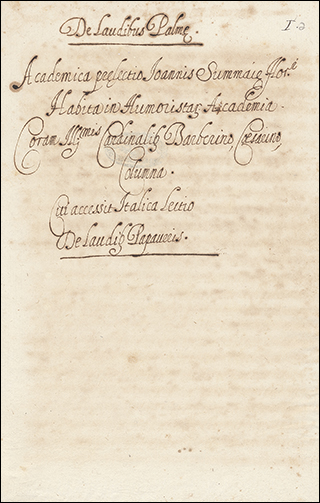 De laudibus Palmę.
I.
Academica pręlectio Ioannis Summaię Flor.
Habita in Humoristar Academia.
Coram Illmis Cardinalib Barberino,
Columna.
Cui accessit Italica lectio
De laudib Papaueris.